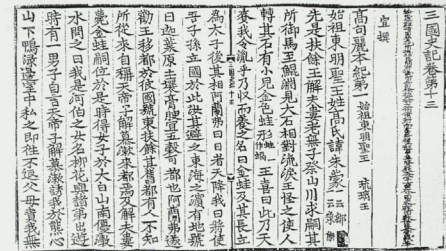 三國史記卷第十三
宣撰
高句麗本紀第一 始祖東明聖王 琉璃王
始祖東明聖王姓高氏諱朱蒙 一云鄒牟一云衆解
先是扶餘王解夫婁老無子祭山川求嗣其
所御馬至鯤淵見大石相對流淚王怪之使人
轉其石有小兒金色蛙形 蛙一作蝸 王喜曰此乃天
賚我令胤乎乃收而養之名曰金蛙及其長立
爲太子後其相阿蘭弗曰日者天降我曰將使
吾子孫立國於此汝其避之東海之濱有地號
曰迦葉原土壤膏腴宜五穀可都也阿蘭弗遂
勸王移都於彼國號東扶餘其舊都有人不知
所從來自稱天帝子解慕漱來都焉及解夫婁
薨金蛙嗣位於是時得女子於大白山南優渤
水問之曰我是河伯之女名柳花與諸弟出遊
時有一男子自言天帝子解慕漱誘我於熊心
山下鴨淥邊室中私之即往不返父母責我無